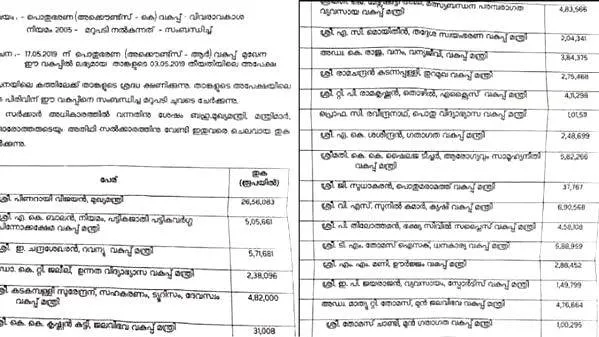 യം :- പൊതുഭരണ (അക്കൗണ്ട്സ് - കെ) വകുപ്പ് - വിവരാവകാശ
നിയമം 2005 - മറുപടി നൽകുന്നത് - സംബന്ധിച്ച്
ചന :- 17.05.2019 ന് പൊതുഭരണ (അക്കൗണ്ട്സ് - ആർ) വകുപ്പ് മുഖേന
ഈ വകുപ്പിൽ ലഭ്യമായ താങ്കളുടെ 03.05.2019 തീയതിയിലെ അപേക്ഷ
നയിലെ കത്തിലേക്ക് താങ്കളുടെ ശ്രദ്ധ ക്ഷണിക്കുന്നു. താങ്കളുടെ അപേക്ഷയിലെ
പിരിവിന് ഈ വകുപ്പിനെ സംബന്ധിച്ച മറുപടി ചുവടെ ചേർക്കുന്നു.
സർക്കാർ അധികാരത്തിൽ വന്നതിനു ശേഷം ബഹു.മുഖ്യമന്ത്രി, മന്ത്രിമാർ,
അതിഥി സൽക്കാരത്തിനു വേണ്ടി ഇതുവരെ ചെലവായ തുക
ക്കുന്നു.
പേര് തുക
(രൂപയിൽ)
ശ്രീ. പിണറായി വിജയൻ, മുഖ്യമന്ത്രി 26,56,083
ശ്രീ. എ. കെ. ബാലൻ, നിയമം, പട്ടികജാതി പട്ടികവർഗ്ഗ
പിന്നോക്കക്ഷേമ വകുപ്പ് മന്ത്രി 5,05,661
ശ്രീ. ഇ. ചന്ദ്രശേഖരൻ, റവന്യൂ വകുപ്പ് മന്ത്രി 5,71,681
ഡോ. കെ. റ്റി. ജലീല്‍, ഉന്നത വിദ്യാഭ്യാസ വകുപ്പ് മന്ത്രി 2,38,096
ശ്രീ. കടകംപള്ളി സുരേന്ദ്രന്‍, സഹകരണം, ടൂറിസം, ദേവസ്വം
വകുപ്പ് മന്ത്രി 4,82,000
ശ്രീ. കെ. കെ. കൃഷ്ണൻ കുട്ടി, ജലവിഭവ വകുപ്പ് മന്ത്രി 31,008
മത്സ്യബന്ധന പരമ്പരാഗത
വ്യവസായ വകുപ്പ് മന്ത്രി 4,83,566
ശ്രീ. എ. സി. മൊയ്തീൻ, തദ്ദേശ സ്വയംഭരണ വകുപ്പ് മന്ത്രി 2,04,341
അഡ്വ. കെ. രാജു, വനം, വന്യജീവി, വകുപ്പ് മന്ത്രി 3,84,375
ശ്രീ. രാമചന്ദ്രൻ കടന്നപ്പള്ളി, തുറമുഖ വകുപ്പ് മന്ത്രി 2,75,468
ശ്രീ. റ്റി. പി. രാമകൃഷ്ണൻ, തൊഴിൽ, എക്സൈസ് വകുപ്പ് മന്ത്രി 4,11,298
പ്രൊഫ. സി. രവീന്ദ്രനാഥ്, പൊതു വിദ്യാഭ്യാസ വകുപ്പ് മന്ത്രി 1,01,557
ശ്രീ. എ. കെ. ശശീന്ദ്രൻ, ഗതാഗത വകുപ്പ് മന്ത്രി 2,48,699
ശ്രീമതി. കെ. കെ. ഷൈലജ ടീച്ചർ, ആരോഗ്യവും സാമൂഹ്യനീതി
വകുപ്പ് മന്ത്രി 5,82,266
ശ്രീ. ജി. സുധാകരൻ, പൊതുമരാമത്ത് വകുപ്പ് മന്ത്രി 37,767
ശ്രീ. വി. എസ്. സുനിൽ കുമാർ, കൃഷി വകുപ്പ് മന്ത്രി 6,90,568
ശ്രീ. പി. തിലോത്തമൻ, ഭക്ഷ്യ സിവിൽ സപ്ലൈസ് വകുപ്പ് മന്ത്രി 4,58,108
ശ്രീ. ടി. എം. തോമസ് ഐസക്, ധനകാര്യ വകുപ്പ് മന്ത്രി 5,88,959
ശ്രീ. എം. എം. മണി, ഊർജ്ജം വകുപ്പ് മന്ത്രി 2,88,452
ശ്രീ. ഇ. പി. ജയരാജൻ, വ്യവസായം, സ്പോർട്സ് വകുപ്പ് മന്ത്രി 1,49,799
അഡ്വ. മാത്യു റ്റി. തോമസ്, മുൻ ജലവിഭവ വകുപ്പ് മന്ത്രി 4,76,664
ശ്രീ. തോമസ് ചാണ്ടി, മുൻ ഗതാഗത വകുപ്പ് മന്ത്രി 1,00,295